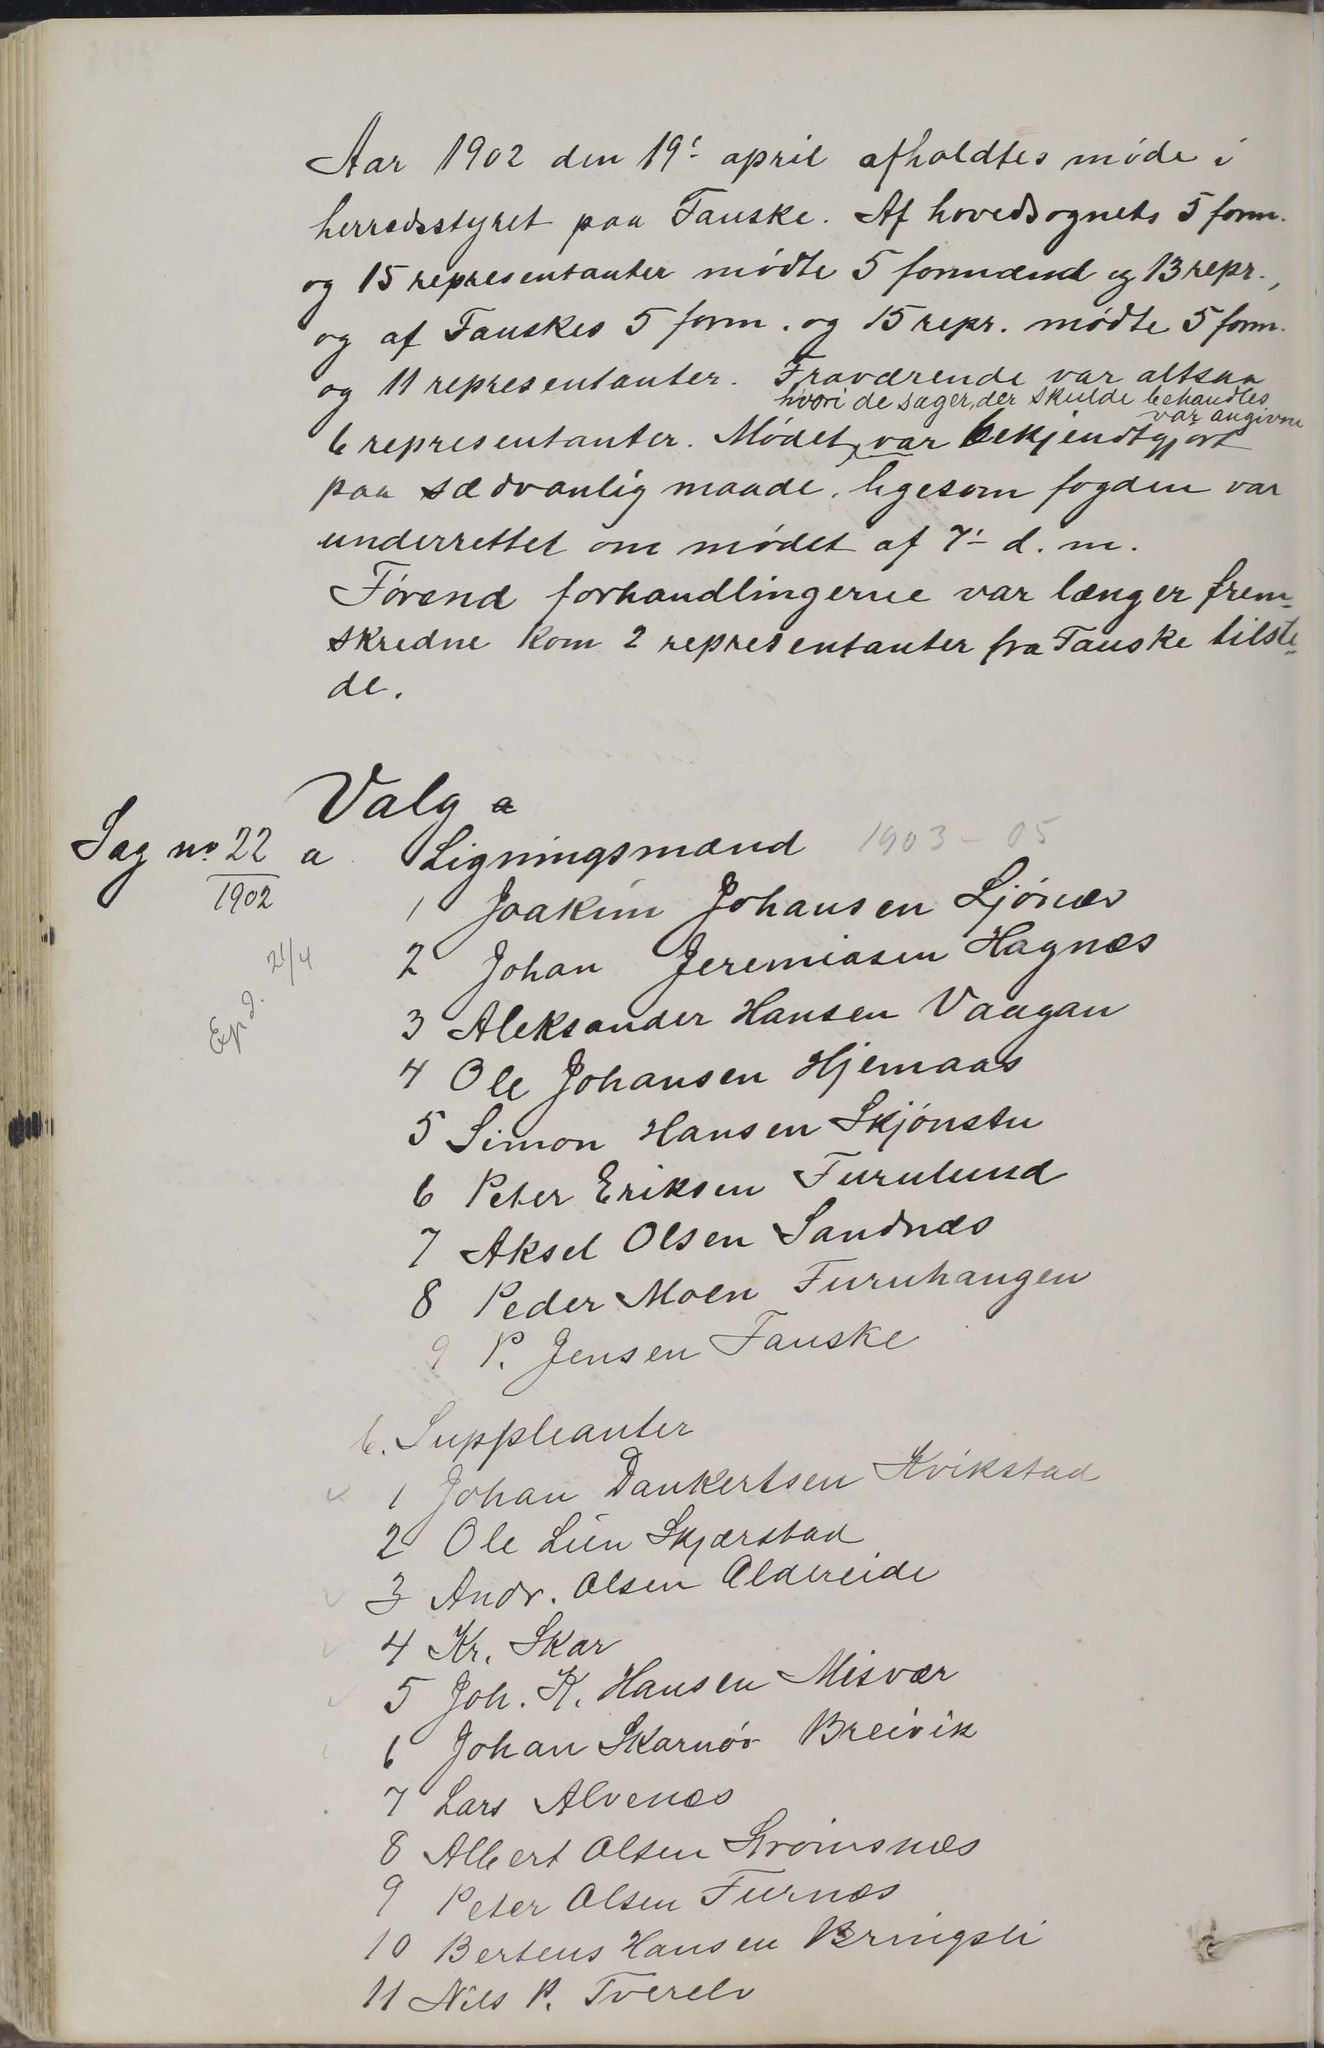 Aar 1902 den 19' april afholdtes møde i
herredsstyret paa Fauske. Af hovedsognets 5 form.
og 15 representanter mødte 5 formænd og 13 repr.,
og af Fauskes 5 form. og 15 repr. mødte 5 form.
og 11 representanter. Fraværende var altsaa
hvori de sager, der skulde behandles
var angivne
6 representanter. Mødet var bekjendtgjort
paa sædvanlig maade, ligesom fogden var
underrettet om mødet af 7'- d. m.
Førend forhandlingerne var længer frem-
skredne kom 2 representanter fra Fauske tilste-
de.
Valg a
Sag no. 22 a Ligningsmænd 1903-05
1902
1 Joakim Johansen Ljønes
21/4
2 Johan Jeremiasen Hagnæs
Exp d.
3 Aleksander Hansen Vaagan
4 Ole Johansen Hjemaas
5 Simon Hansen Skjønstu
6 Peter Eriksen Furulund
7 Aksel Olsen Sandnæs
8 Peder Moen Furuhaugen
9 P. Jensen Fauske
b. Suppleanter
1 Johan Dankertsen Kvikstad
2 Ole Lien Skjærstad
3 Andr. Olsen Oldereide
4 Kr. Skar
5 Joh. K. Hansen Misvær
6 Johan Skarnøs Breivik
7 Lars Alvenæs
8 Albert Olsen Strømsnæs
9 Peter Olsen Furnæs
10 Berteus Hansen Bringsli
11 Nils P. Tverelv